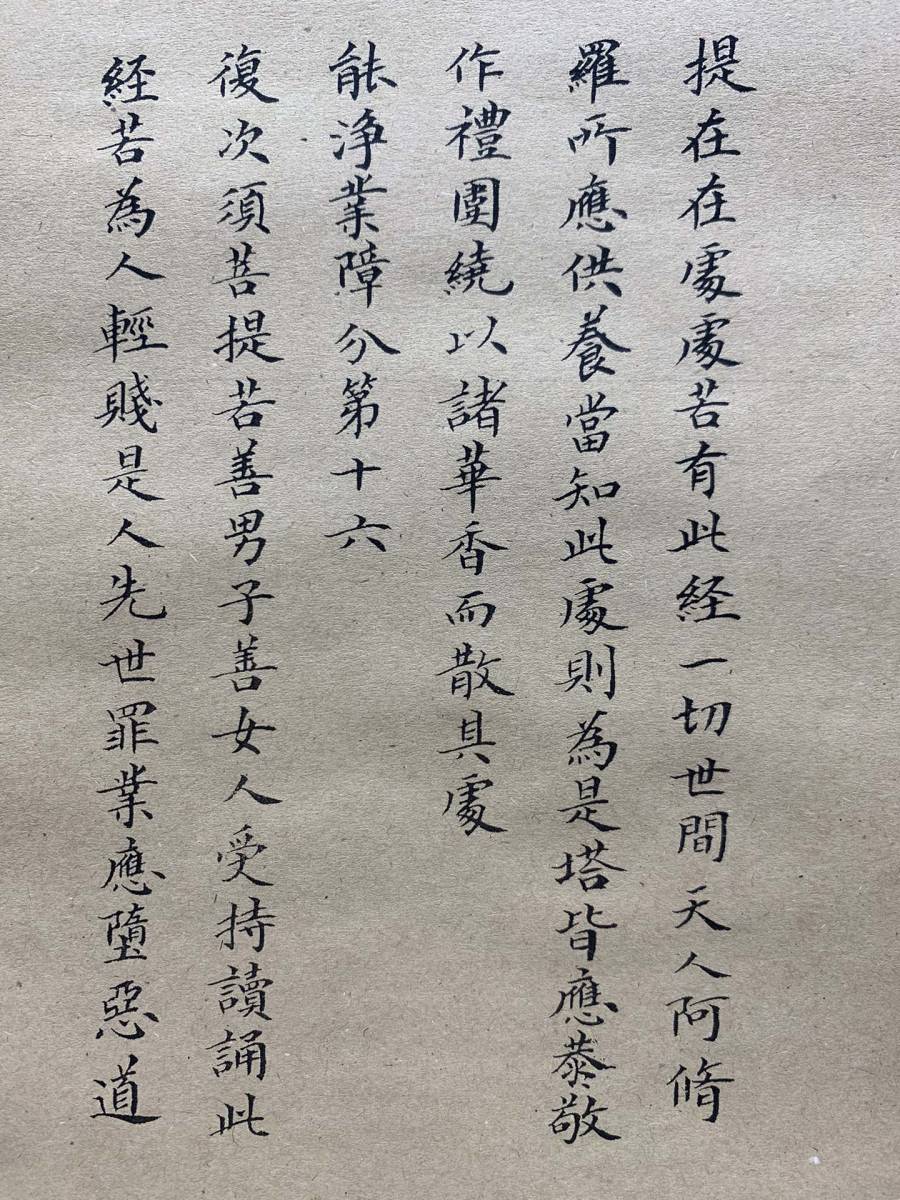 提在在處處若有此経一切世間天人阿脩
羅所應供養當知此處則為是塔皆應恭敬
作禮圍繞以諸華香而散其處
能浄業障分第十六
復次須菩提若善男子善女人受持讀誦此
経若為人輕賤是人先世罪業應墮惡道